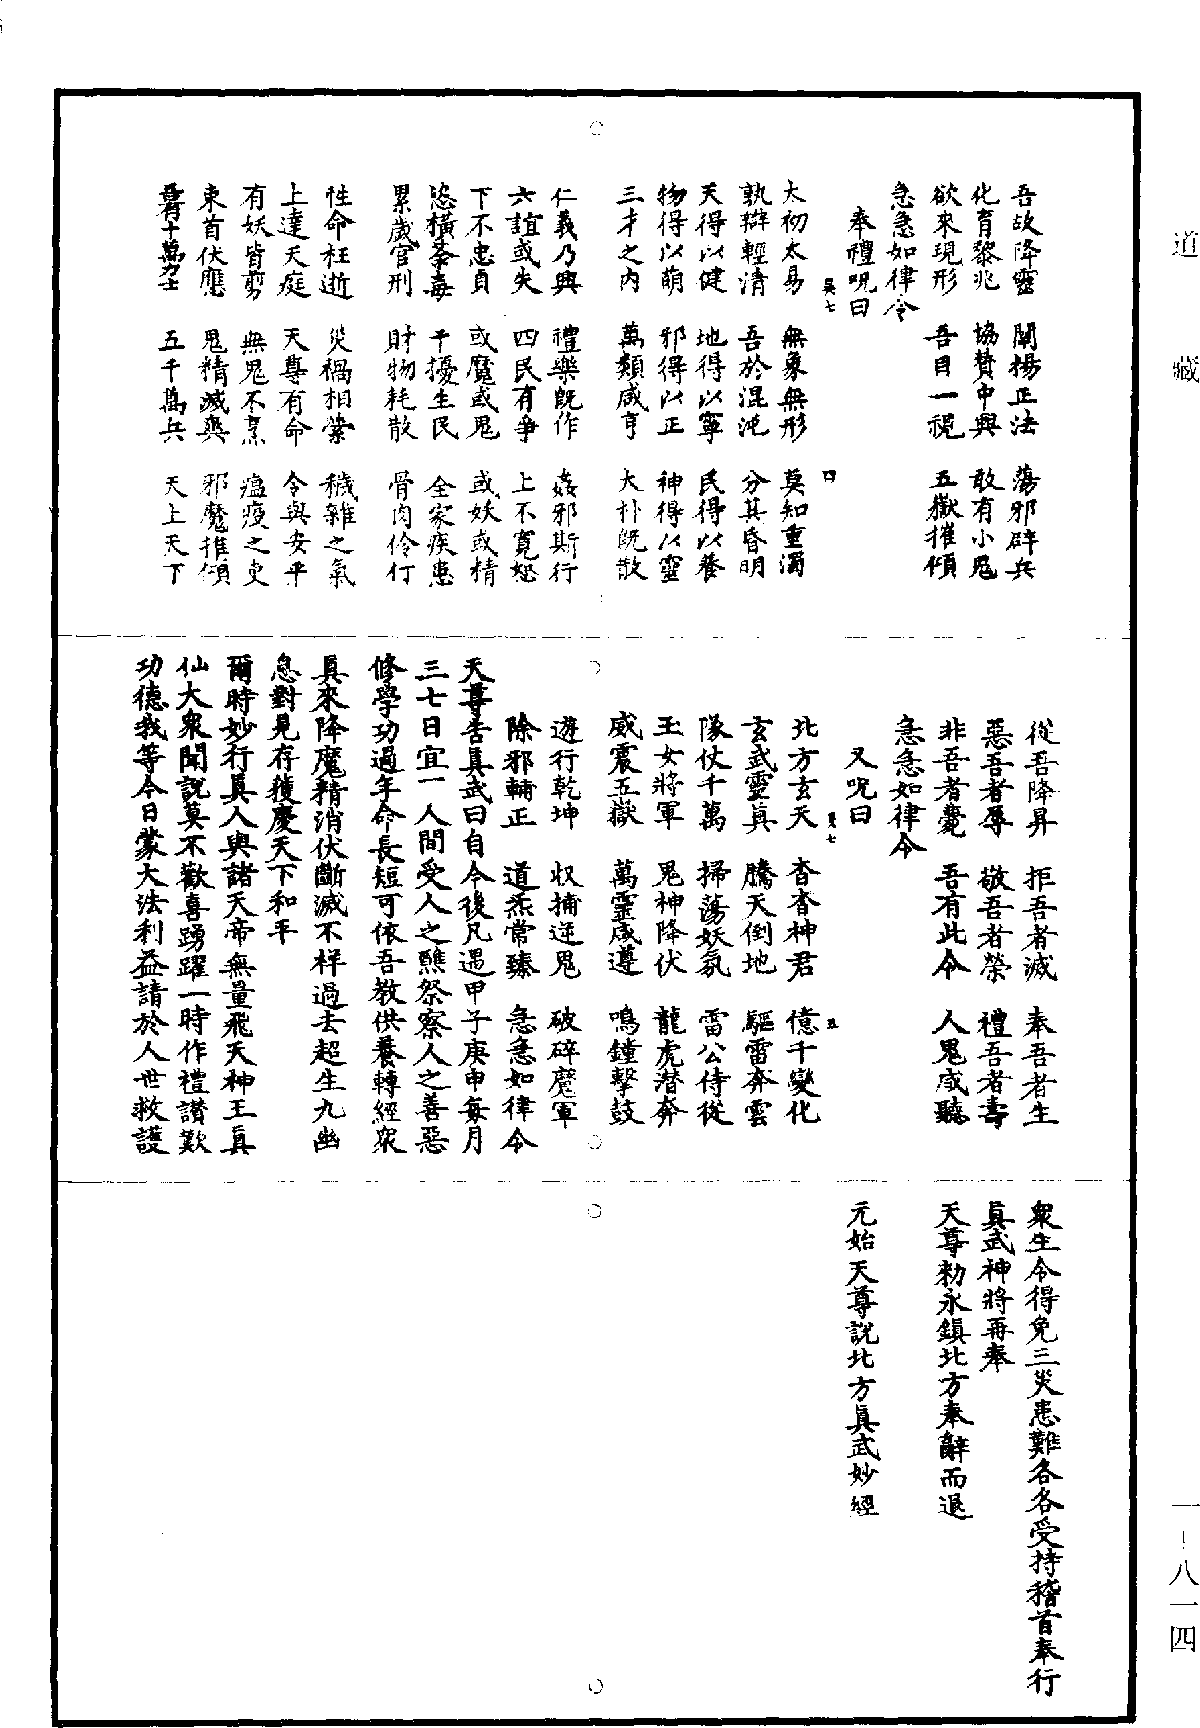 道藏
吾故降靈 闡揚正法 蕩邪辟兵
化育黎兆 協贊中興 敢有小鬼
欲來現形 吾目一視 五嶽摧傾
急急如律令
奉禮呪曰
四
太初太易 無象無形 莫知重濁
孰辯輕清 吾於混沌 分其昏明
天得以健 地得以寧 民得以養
物得以萌 邪得以正 神得以靈
三才之内 萬類咸亨 大朴旣散
仁義乃興 禮樂旣作 姦邪斯行
六誼或失 四民有爭 上不寬恕
下不忠貞 或魔或鬼 或妖或精
恣橫荼毒 干擾生民 全家疾患
累歲官刑 財物耗散 骨肉伶仃
性命枉逝 災禍相縈 穢雜之氣
上達天庭 天尊有命 令與安平
有妖皆剪 無鬼不烹 瘟疫之吏
束首伏應 鬼精滅爽 邪魔摧傾
吾有十萬力士 五千萬兵 天上天下
從吾降昇 拒吾者滅 奉吾者生
惡吾者辱 敬吾者榮 禮吾者壽
非吾者薨 吾有此令 人鬼咸聽
急急如律令
又呪曰
五
北方玄天 杳杳神君 億千變化
玄武靈眞 騰天倒地 驅雷奔雲
隊仗千萬 掃蕩妖氛 雷公侍從
玉女將軍 鬼神降伏 龍虎潛奔
威震五嶽 萬靈咸遵 鳴鐘擊鼓
遊行乾坤 收捕逆鬼 破碎魔軍
除邪輔正 道炁常臻 急急如律令
天尊告眞武曰自今後凡遇甲子庚申每月
三七日宜一人間受人之醮祭察人之善惡
修學功過年命長短可依吾教供養轉經衆
眞來降魔精消伏斷滅不祥過去超生九幽
息對見存獲慶天下和平
爾時妙行眞人與諸天帝無量飛天神王眞
仙大衆聞說莫不歡喜踴躍一時作禮讚歎
功德我等今日蒙大法利益請於人世救護
衆生令得免三災患難各各受持稽首奉行
眞武神將再奉
天尊勑永鎮北方奉辭而退
元始天尊說北方眞武妙經
一-八一四